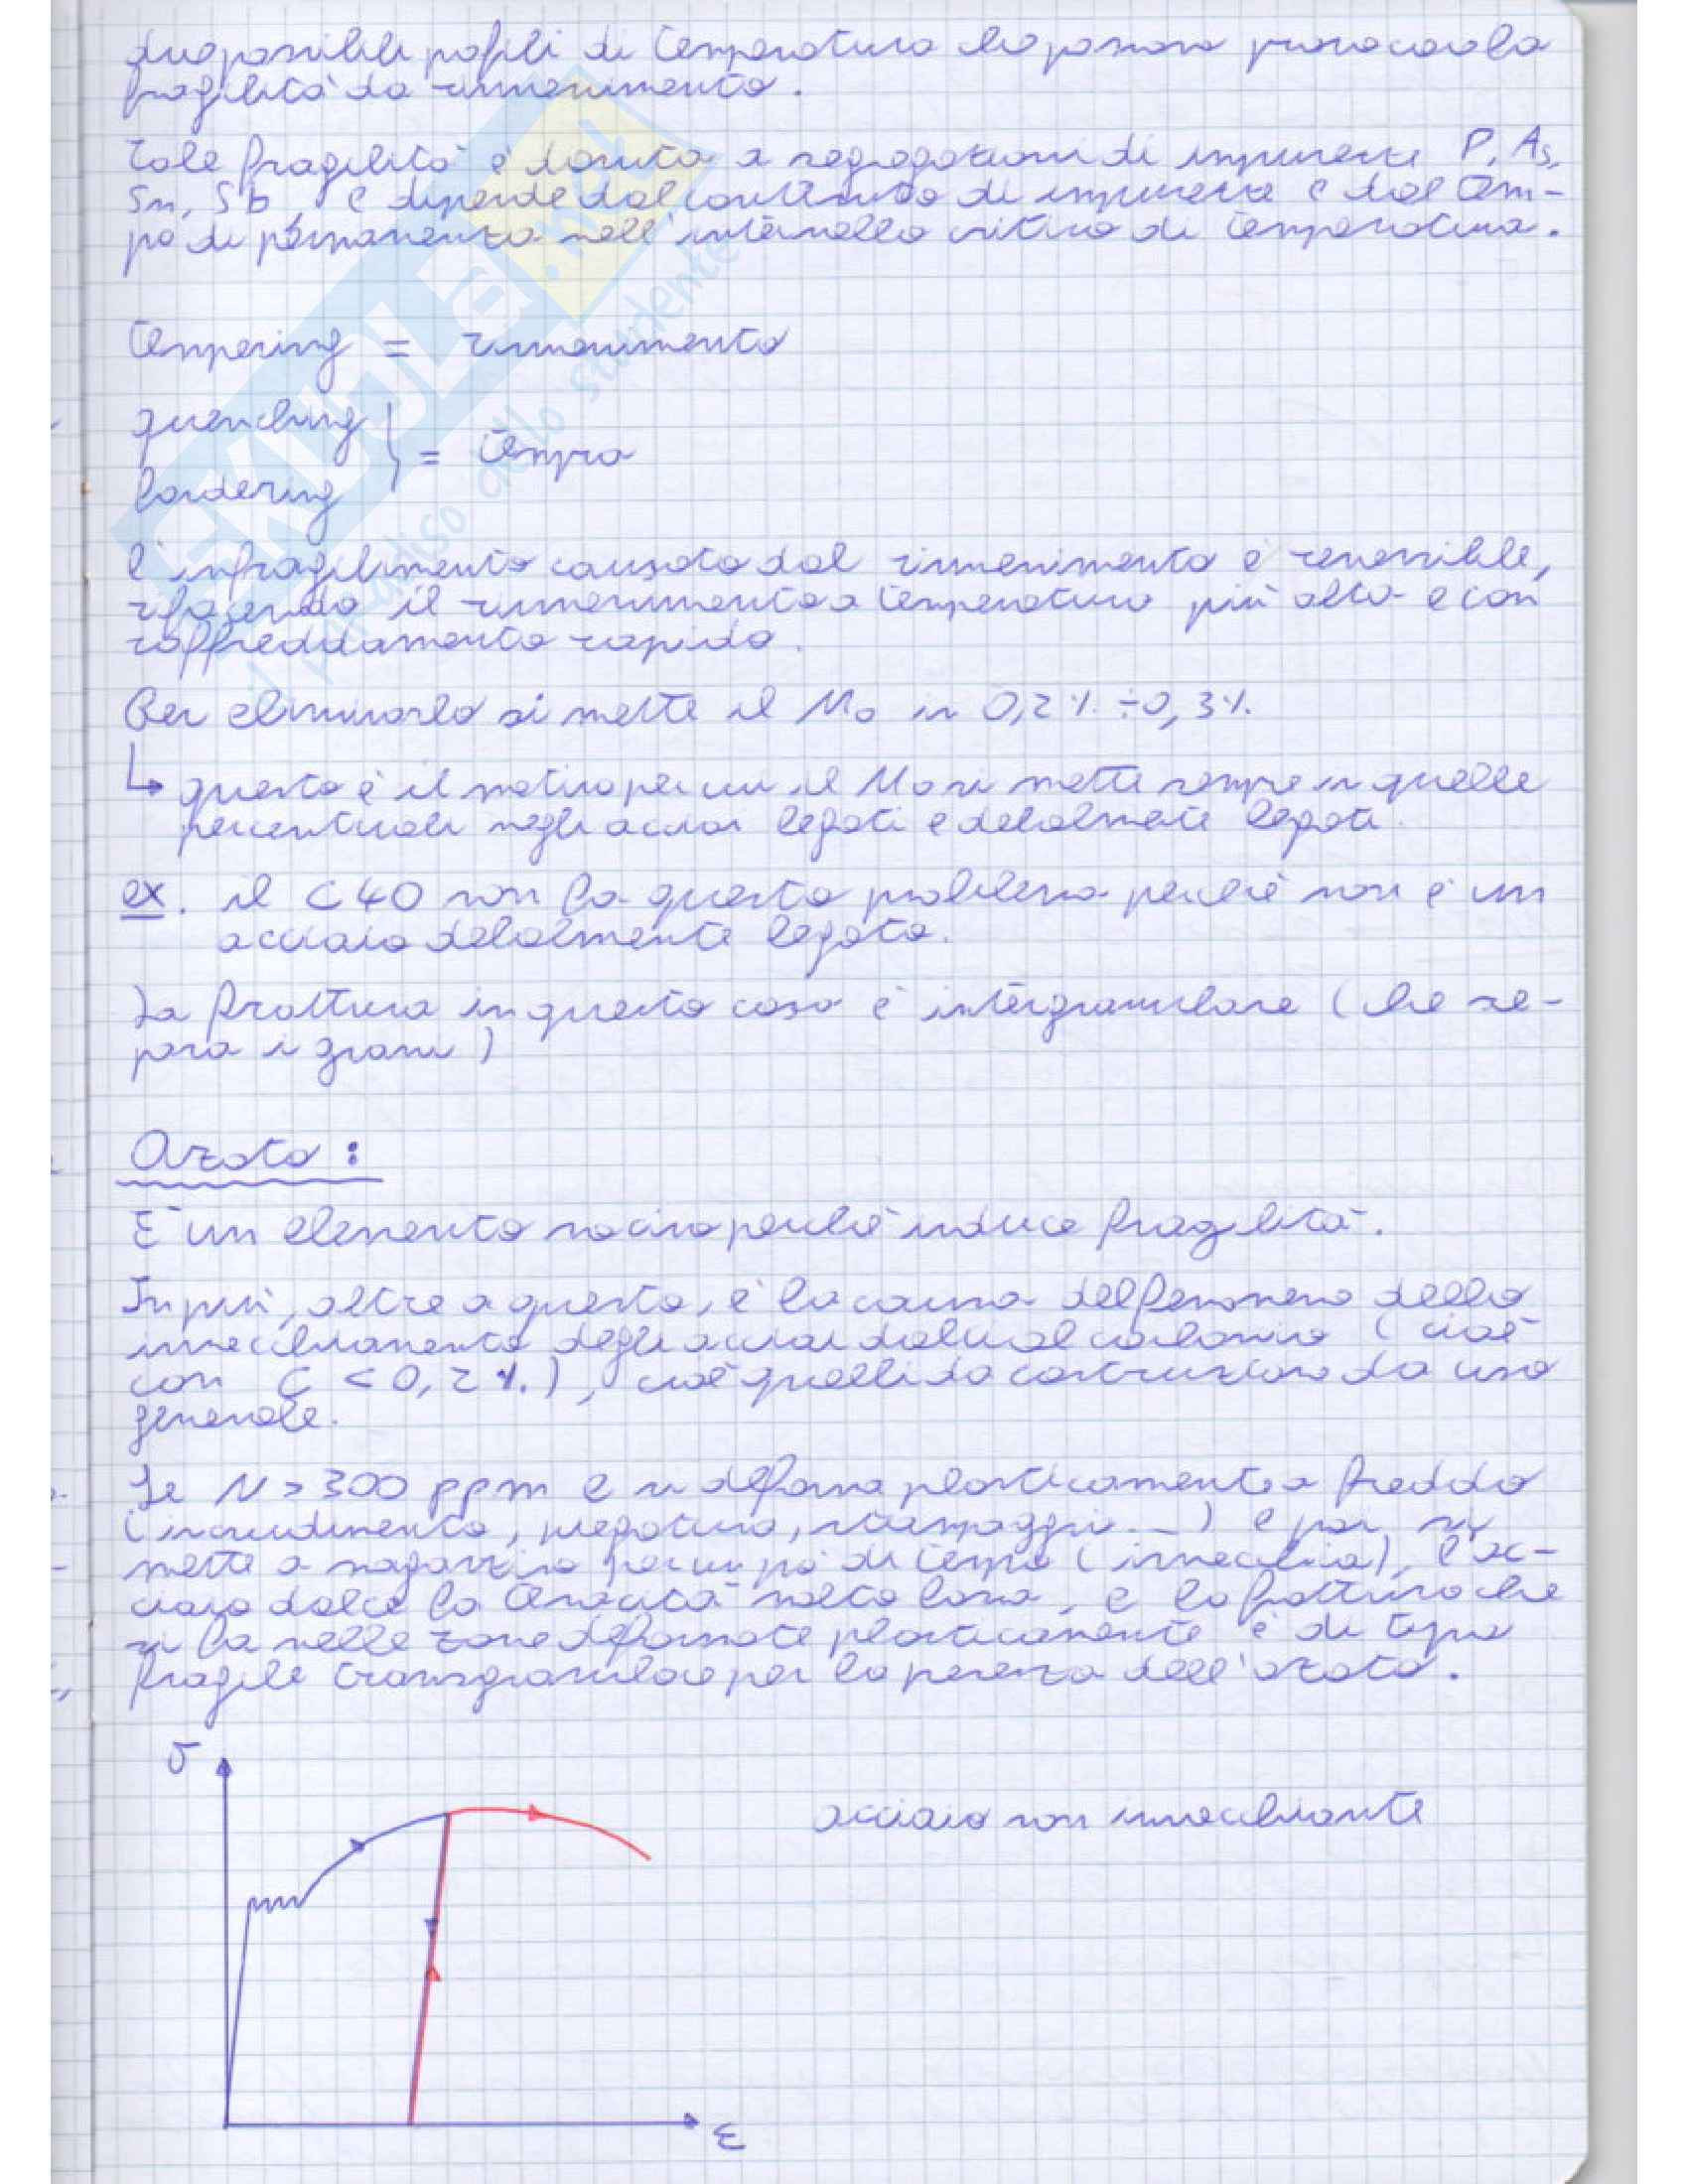 due possibili profili di temperatura che possono provocare la
fragilità da rinvenimento.
Tale fragilità è dovuta a segregazioni di impurezze P, As,
Sn, Sb, e dipende dal contenuto di impurezze e dal tem-
po di permanenza nell'intervallo critico di temperatura.
tempering = rinvenimento
quenching
hardering } = tempra
l'infragilimento causato dal rinvenimento è reversibile,
rifacendo il rinvenimento a temperatura più alta e con
raffreddamento rapido.
Per eliminarlo si mette il Mo in 0,2% ÷ 0,3%
↳ questo è il motivo per cui il Mo si mette sempre in quelle
percentuali negli acciai legati e debolmente legati.
ex. il C40 non ha questo problema perché non è un
acciaio debolmente legato.
La frattura in questo caso è intergranulare (che se-
para i grani)
Azoto:
È un elemento nocivo perché induce fragilità.
In più, oltre a questo, è la causa del fenomeno dello
invecchiamento degli acciai dolci al carbonio (cioè
con C < 0,2%), cioè quelli da costruzione da uso
generale.
Se N > 300 ppm e si deforma plasticamente a freddo
(incrudimento, piegatura, stampaggi...) e poi si
mette a magazzino per un po' di tempo (invecchia), l'ac-
ciaio dolce ha tenacità molto bassa, e la frattura che
si ha nelle zone deformate plasticamente è di tipo
fragile transgranulare per la presenza dell'azoto.
σ
acciaio non invecchiante
ε
SKUOLA.net
il paradiso dello studente